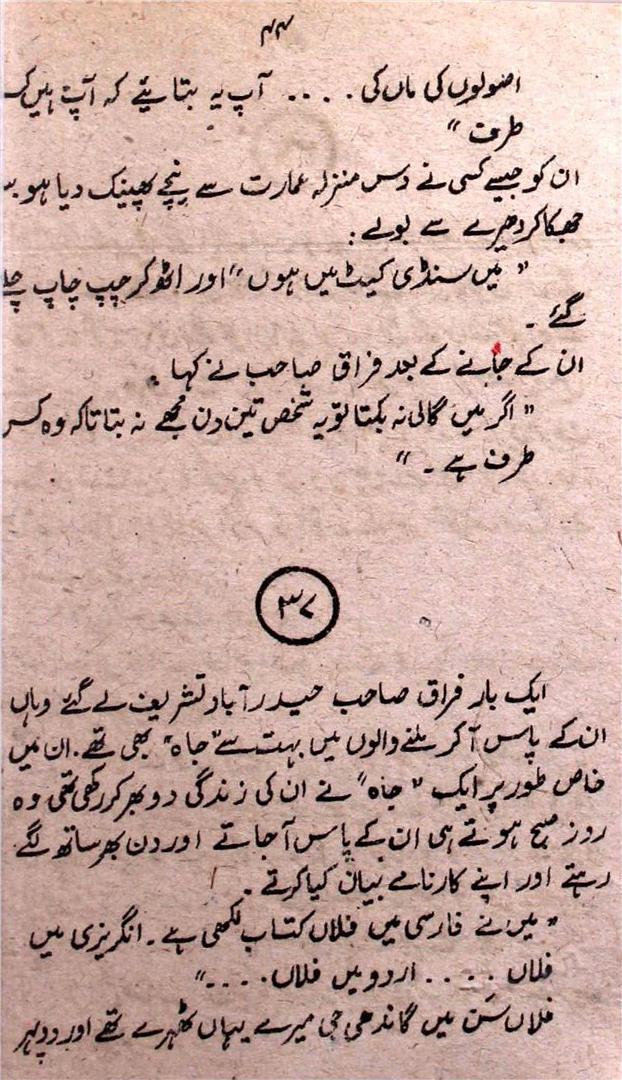 ۴۴
اصولوں کی ماں کی . . . . آپ یہ بتایئے کہ آپ ہیں کس
طرف "
ان کو جیسے کسی نے دس منزلہ عمارت سے نیچے پھینک دیا ہو
جھکا کر دھیرے سے بولے :
" میں سنڈی کیٹ میں ہوں " اور اٹھ کر چپ چاپ چلے
گئے ۔
ان کے جانے کے بعد فراق صاحب نے کہا ۔
" اگر میں گالی نہ بکتا تو یہ شخص تین دن مجھے نہ بتاتا کہ وہ کس
طرف ہے ۔ "
۳۷
ایک بار فراق صاحب حیدر آباد تشریف لے گئے وہاں
ان کے پاس آکر ملنے والوں میں بہت سے "جاہ" بھی تھے ۔ ان میں
خاص طور پر ایک "جاہ" نے ان کی زندگی دوبھر کر رکھی تھی وہ
روز صبح ہوتے ہی ان کے پاس آجاتے اور دن بھر ساتھ لگے
رہتے اور اپنے کارنامے بیان کیا کرتے ۔
" میں نے فارسی میں فلاں کتاب لکھی ہے ۔ انگریزی میں
فلاں . . . . اردو میں فلاں . . . . "
فلاں سَن میں گاندھی جی میرے یہاں ٹھہرے تھے اور دوپہر